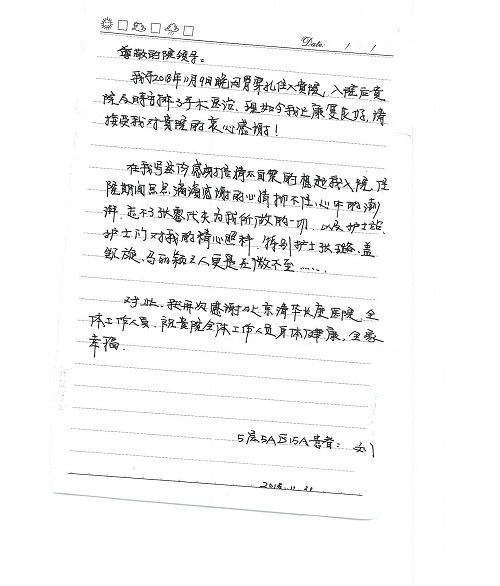 Date: / /
尊敬的院领导。
我于2018年11月9日晚间胃穿孔住入贵院，入院后贵
院及时安排了手术医治，现如今我已康复良好，请
接受我对贵院的衷心感谢！
在我写这份感谢信时不自禁的想起我入院、住
院期间点点滴滴感谢的心情抑不住心中的澎
湃，忘不了张 大夫为我所做的一切，以及护士
护士们对我的精心照料，特别护士张璐、盖
凯旋、马丽颖三人更是无微不至……
对此，我再次感谢北京清华长庚医院，全
体工作人员，祝贵院全体工作人员身体健康，全家
幸福.
5层5A区15A患者：刘
2018.11.23